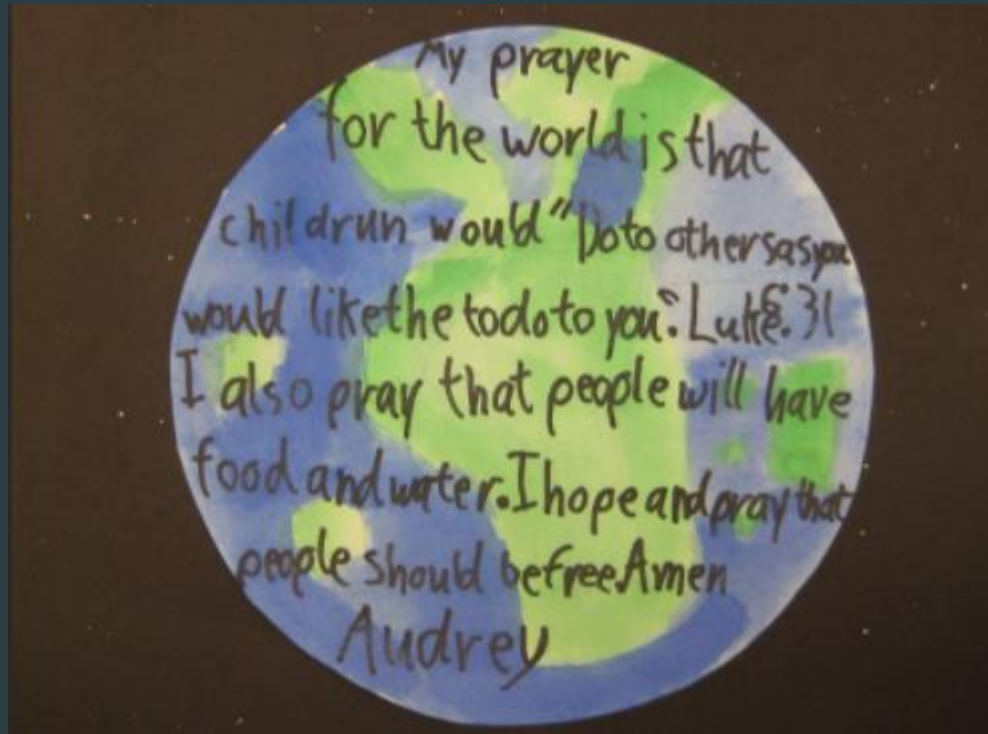 My prayer
for the world is that
childrun would "Do to others as you
would like the to do to you". Luke 6:31
I also pray that people will have
food and water. I hope and pray that
people should be free. Amen
Audrey